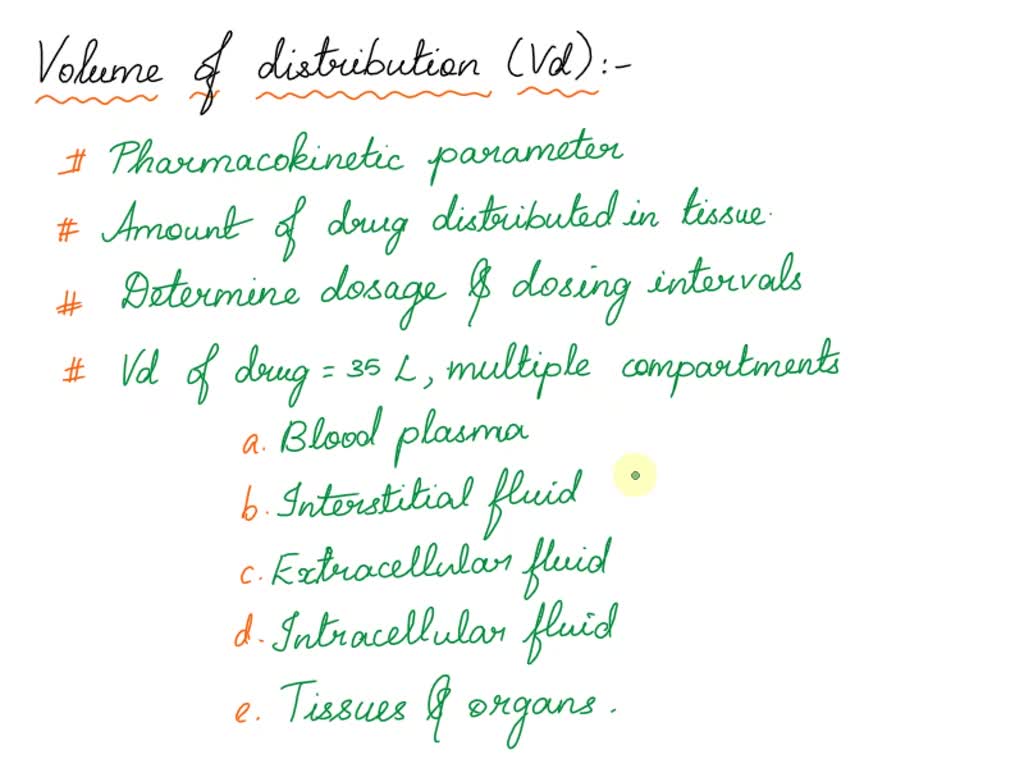 Volume of distribution (Vd):-
# Pharmacokinetic parameter
# Amount of drug distributed in tissue.
# Determine dosage & dosing intervals
# Vd of drug = 35 L, multiple compartments
a. Blood plasma
b. Interstitial fluid
c. Extracellular fluid
d. Intracellular fluid
e. Tissues & organs.